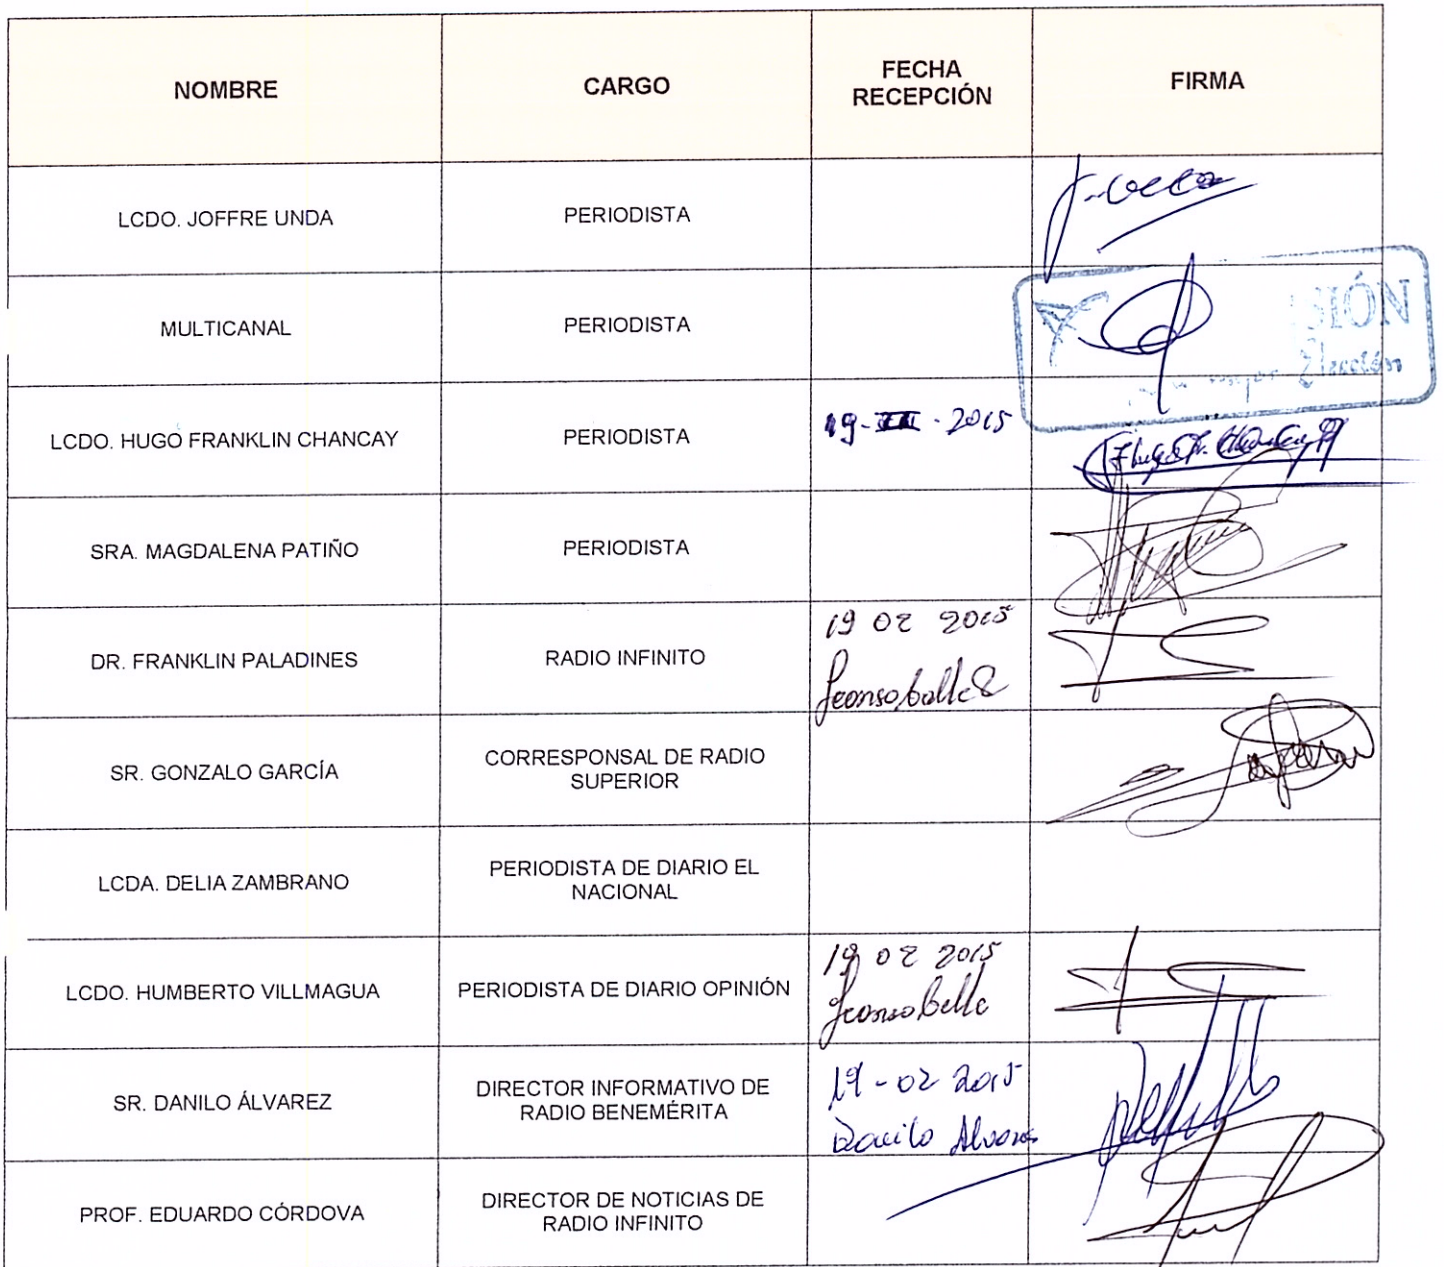 NOMBRE
CARGO
FECHA
RECEPCIÓN
FIRMA
LCDO. JOFFRE UNDA
PERIODISTA
MULTICANAL
PERIODISTA
SIÓN
mejor Elección
LCDO. HUGO FRANKLIN CHANCAY
PERIODISTA
19- -2015
SRA. MAGDALENA PATIÑO
PERIODISTA
DR. FRANKLIN PALADINES
RADIO INFINITO
19 02 2015
SR. GONZALO GARCÍA
CORRESPONSAL DE RADIO
SUPERIOR
LCDA. DELIA ZAMBRANO
PERIODISTA DE DIARIO EL
NACIONAL
LCDO. HUMBERTO VILLMAGUA
PERIODISTA DE DIARIO OPINIÓN
19 02 2015
SR. DANILO ÁLVAREZ
DIRECTOR INFORMATIVO DE
RADIO BENEMÉRITA
19-02 2015
Danilo Alvarez
PROF. EDUARDO CÓRDOVA
DIRECTOR DE NOTICIAS DE
RADIO INFINITO